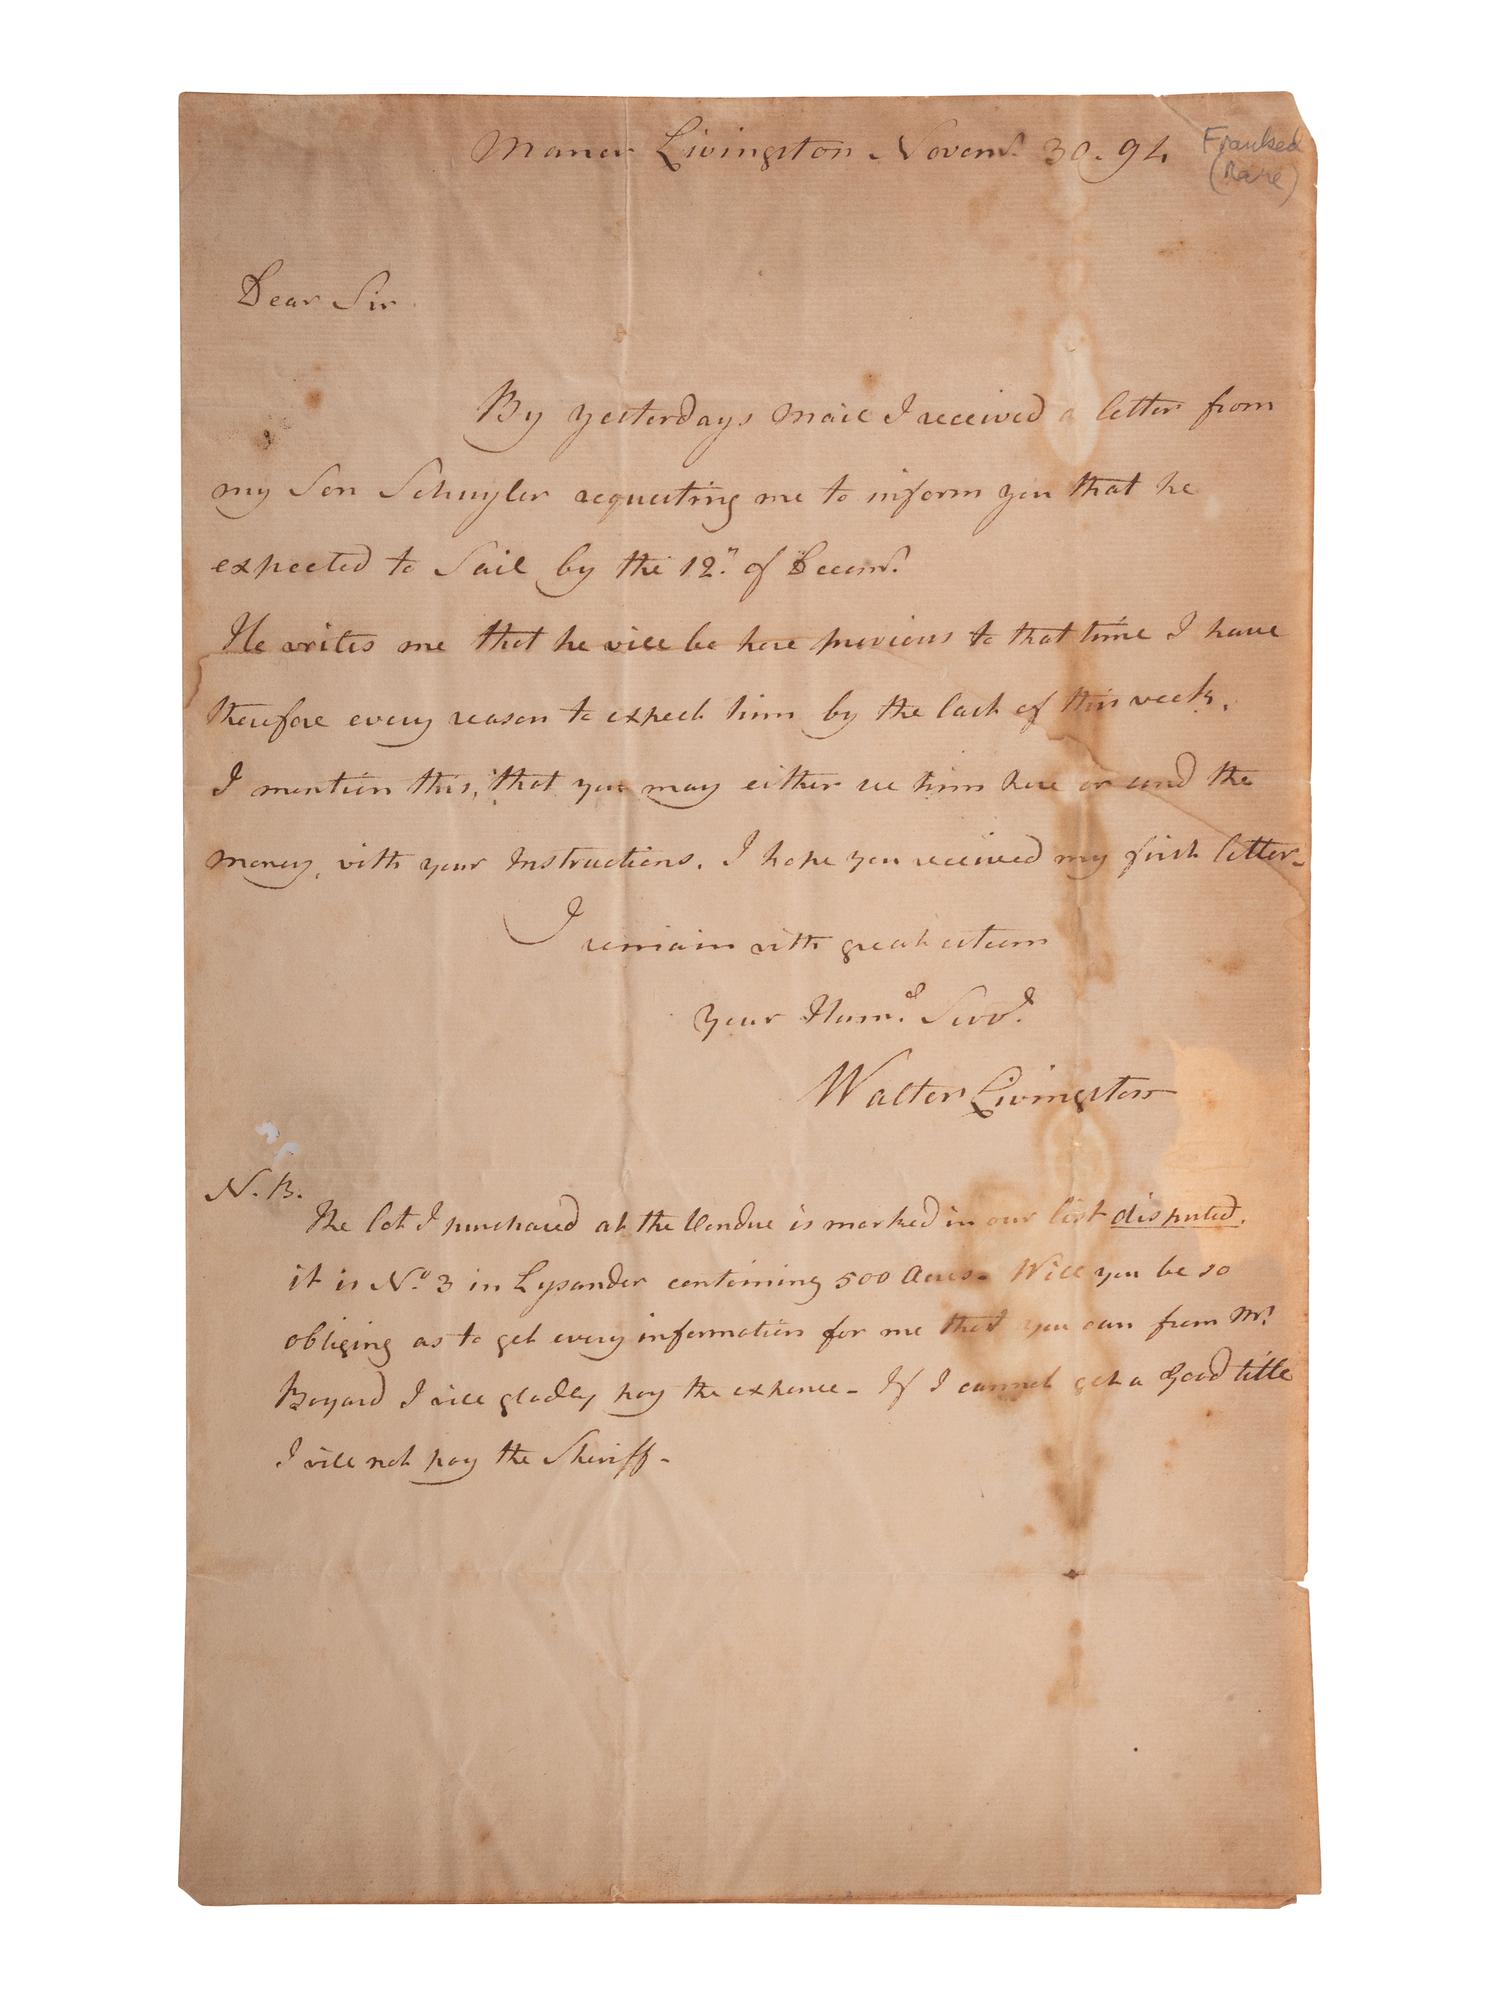 Manor Livingston Novem.r 30. 94
Franked
(Rare)
Dear Sir
By yesterdays Mail I received a letter from
my Son Schuyler requesting me to inform you that he
expected to Sail by the 12.th of Decem.r
He writes me that he will be here previous to that time I have
therefore every reason to expect him by the last of this week,
I mention this, that you may either see him here or send the
Money, with your Instructions. I hope you received my first letter-
I remain with great esteem
Your Hum.e Serv.t
Walter Livingston
N.B.
The lot I purchased at the Vendue is marked in our list disputed.
it is No. 3 in Lysander containing 500 Acres - Will you be so
obliging as to get every information for me that you can from Mr.
Bayard I will gladly pay the expence - If I cannot get a Good title
I will not pay the Sheriff -